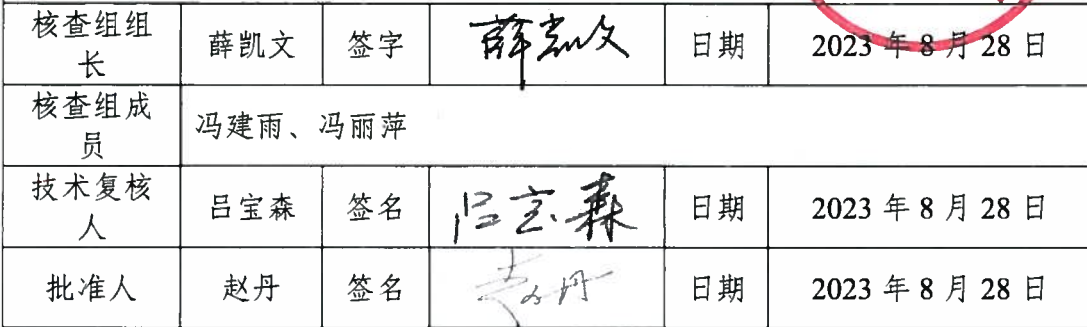 核查组组长 薛凯文 签字 薛凯文 日期 2023 年 8 月 28 日
核查组成员 冯建雨、冯丽萍
技术复核人 吕宝森 签名 吕宝森 日期 2023 年 8 月 28 日
批准人 赵丹 签名 赵丹 日期 2023 年 8 月 28 日